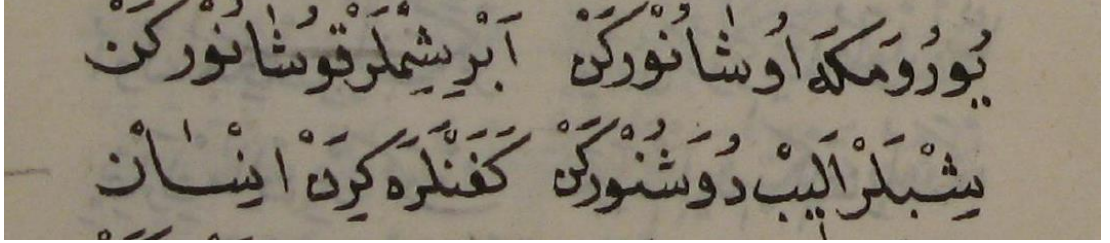 يُورُومَكَه اُوشَانُوْركَنْ اَبْرِيشِمْلَرْ قُوشَانُوْركَنْ
يِشْبَلَرْ اَلِيبْ دُوَشُنُوْركَنْ كَفَنْلَرَه كِرَنْ اِنْسَانْ